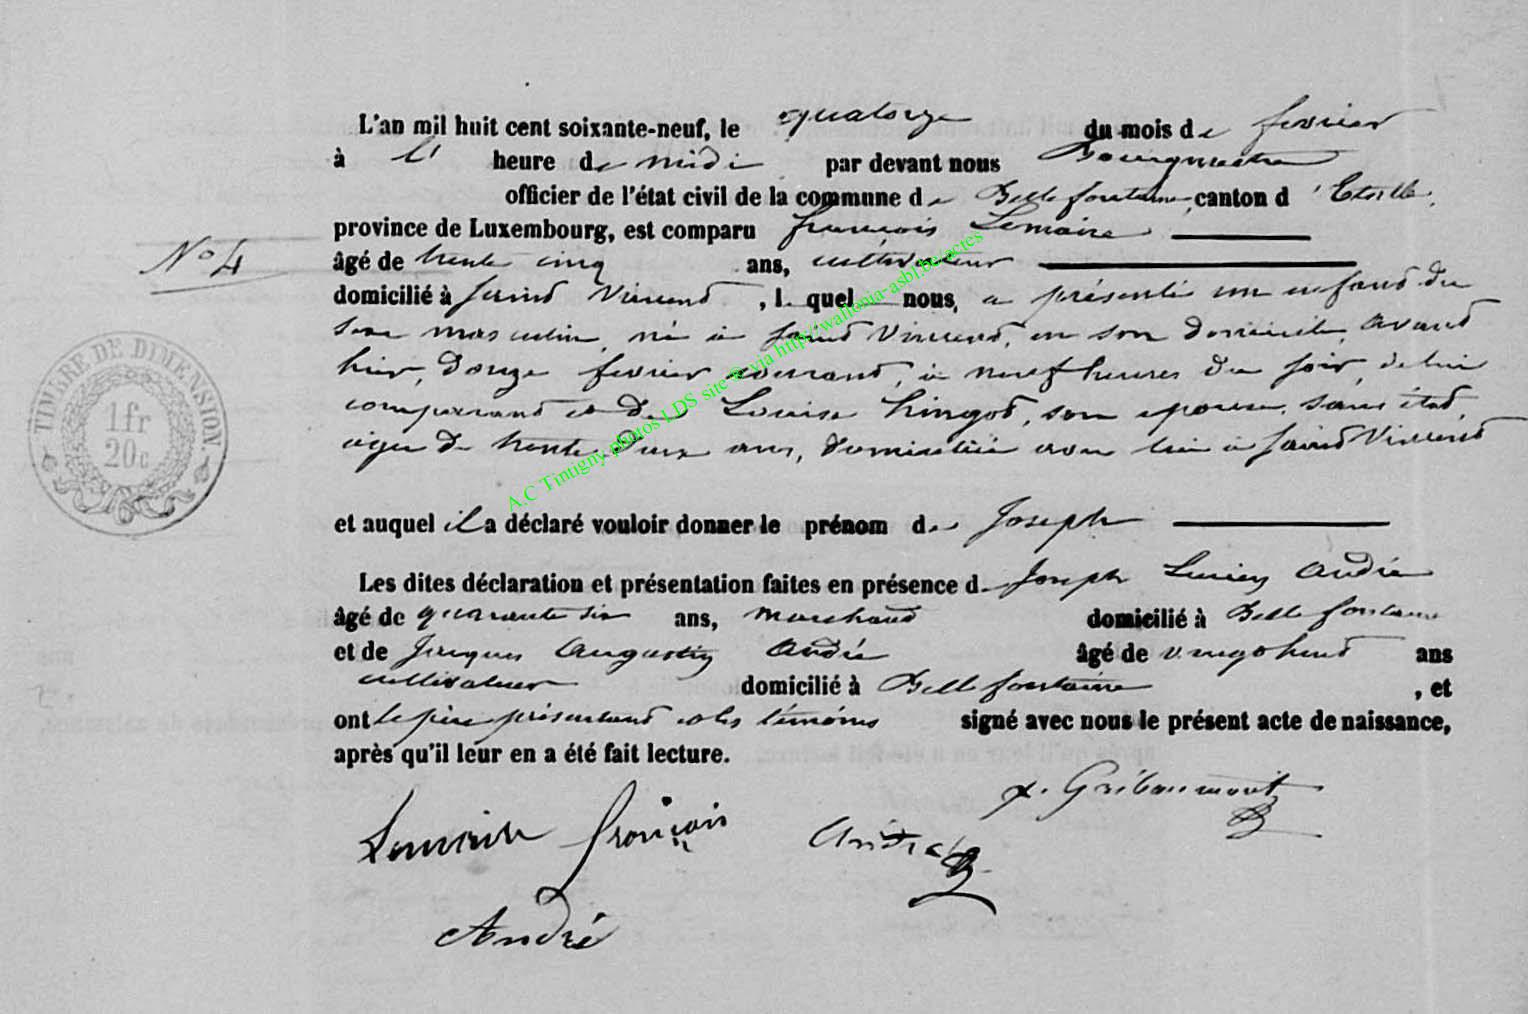 L'an mil huit cent soixante-neuf, le quatorze du mois de fevrier
à l' heure de midi par devant nous Bourgmestre
officier de l'état civil de la commune de Bellefontaine, canton d'Etalle,
province de Luxembourg, est comparu françois Lemaire
N° 4
âgé de trente cinq ans, cultivateur
domicilié à Saint Vincent, l quel nous, a présenté un enfant du
sexe masculin, né à Saint Vincent, en son domicile, avant
hier, douze fevrier courant, à neuf heures du soir, de lui
comparant et de Louise son epouse, sans état,
agée de trente deux ans, domiciliée avec lui à Saint Vincent
TIMBRE DE DIMENSION.
1 fr
20 c
A.C Tintigny photos LDS site @ via http://wallonia-asbl.be/actes
et auquel il a déclaré vouloir donner le prénom de Joseph
Les dites déclaration et présentation faites en présence d Joseph Lucien André
âgé de quarante six ans, marchand domicilié à Bellefontaine
et de Jacques Augustin André âgé de vingt huit ans
cultivateur domicilié à Bellefontaine, et
ont le père présentant et les témoins signé avec nous le présent acte de naissance,
après qu'il leur en a été fait lecture.
Gribaumont
Lemaire françois André
André